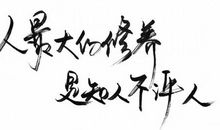 人最大的修养
是知人不评人